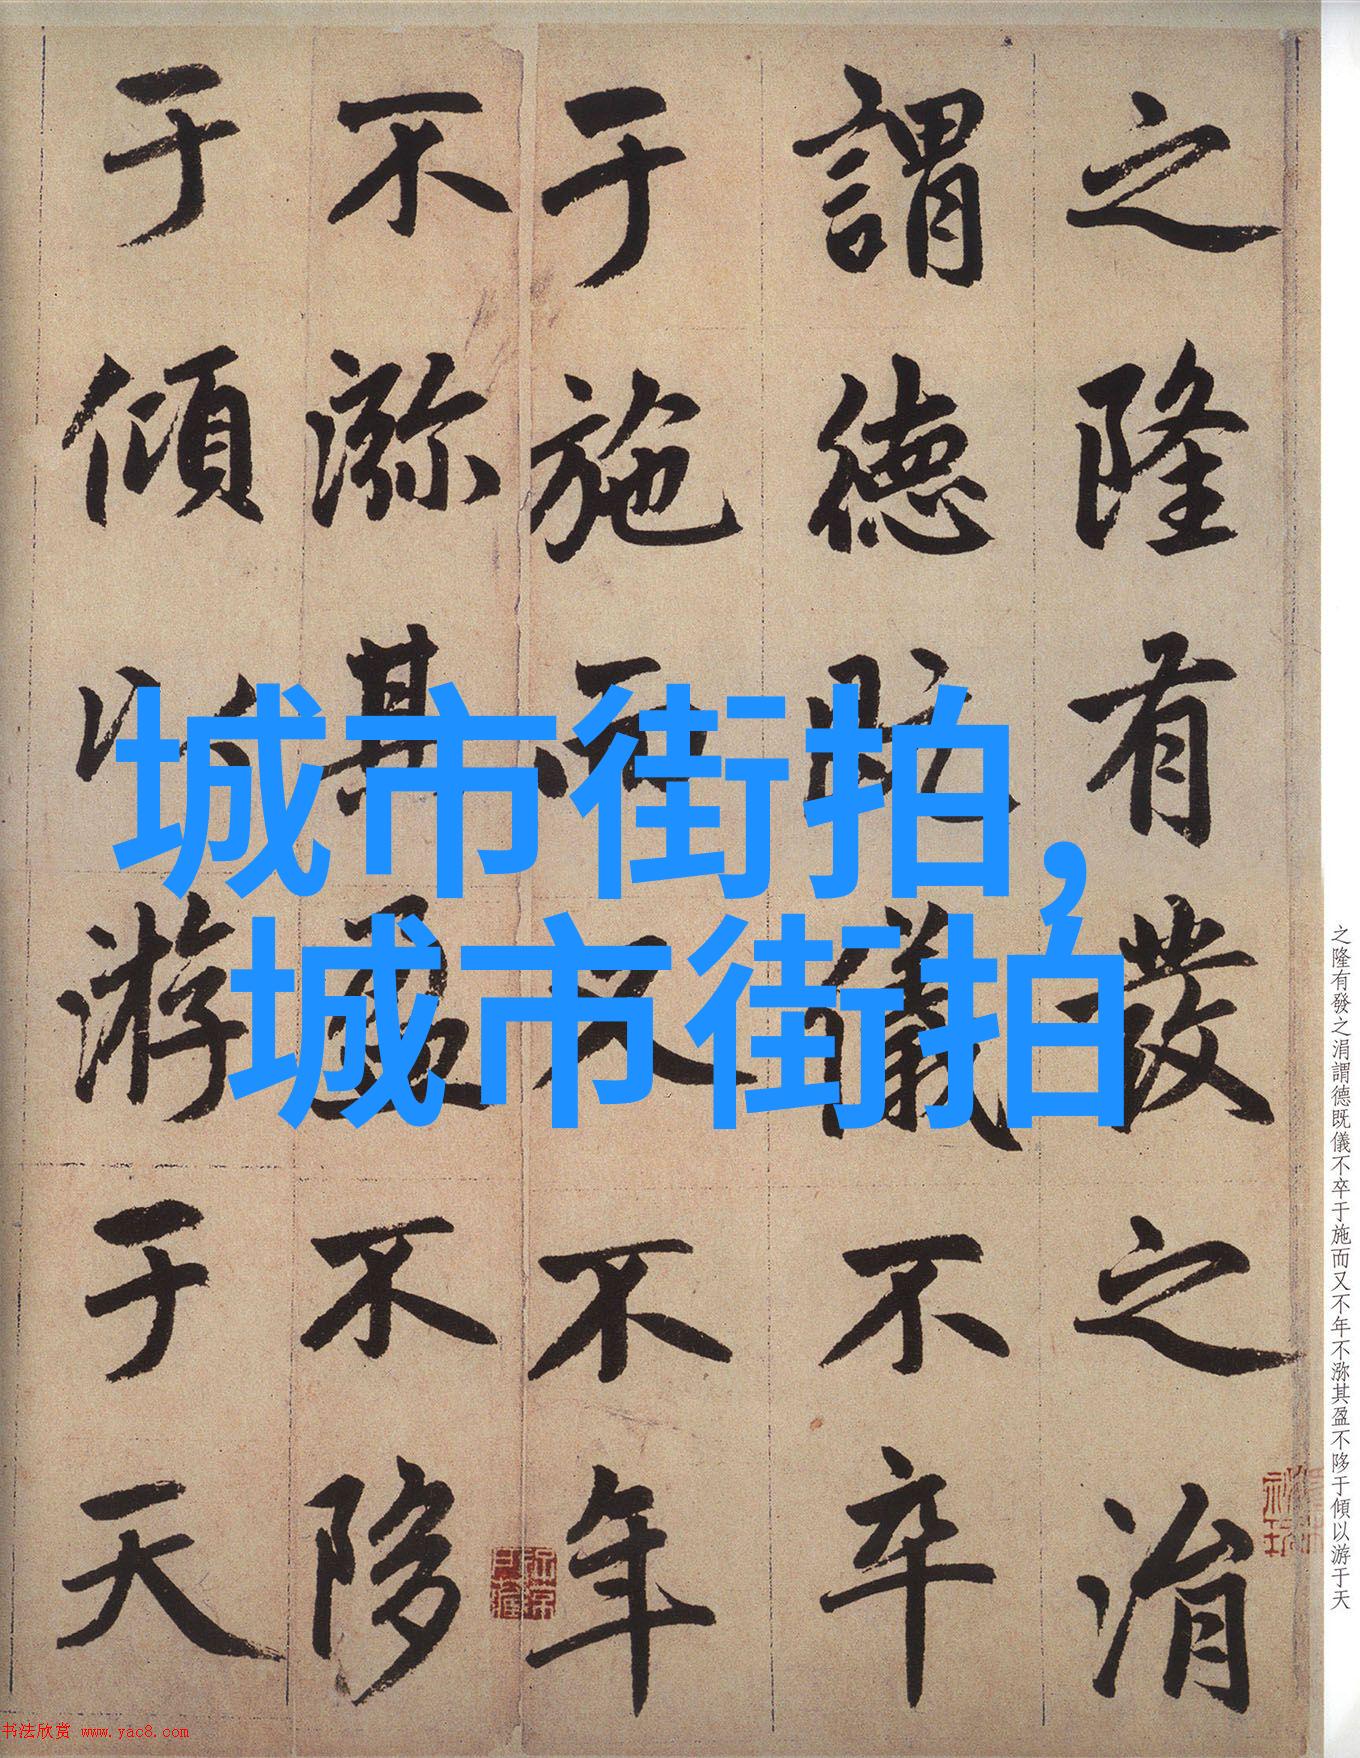 之隆有發之涓
謂德既儀不卒
于施而又不年
不㳽其盈不陊
于傾以游于天
城市街拍,
城市街拍
之隆有發之涓謂德既儀不卒于施而又不年不㳽其盈不陊于傾以游于天
书法欣赏 www.yac8.com